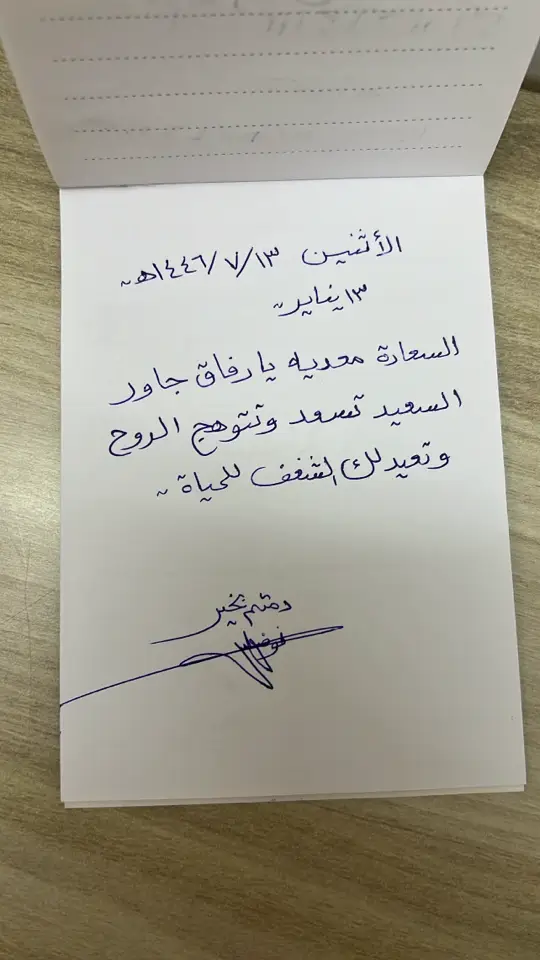 الأثنين ١٤٤٦/٧/١٣هـ
١٣ يناير
السعادة معديه يا رفاق جاور
السعيد تسعد وتتوهج الروح
وتعيد لك الشغف للحياة
دمتم بخير